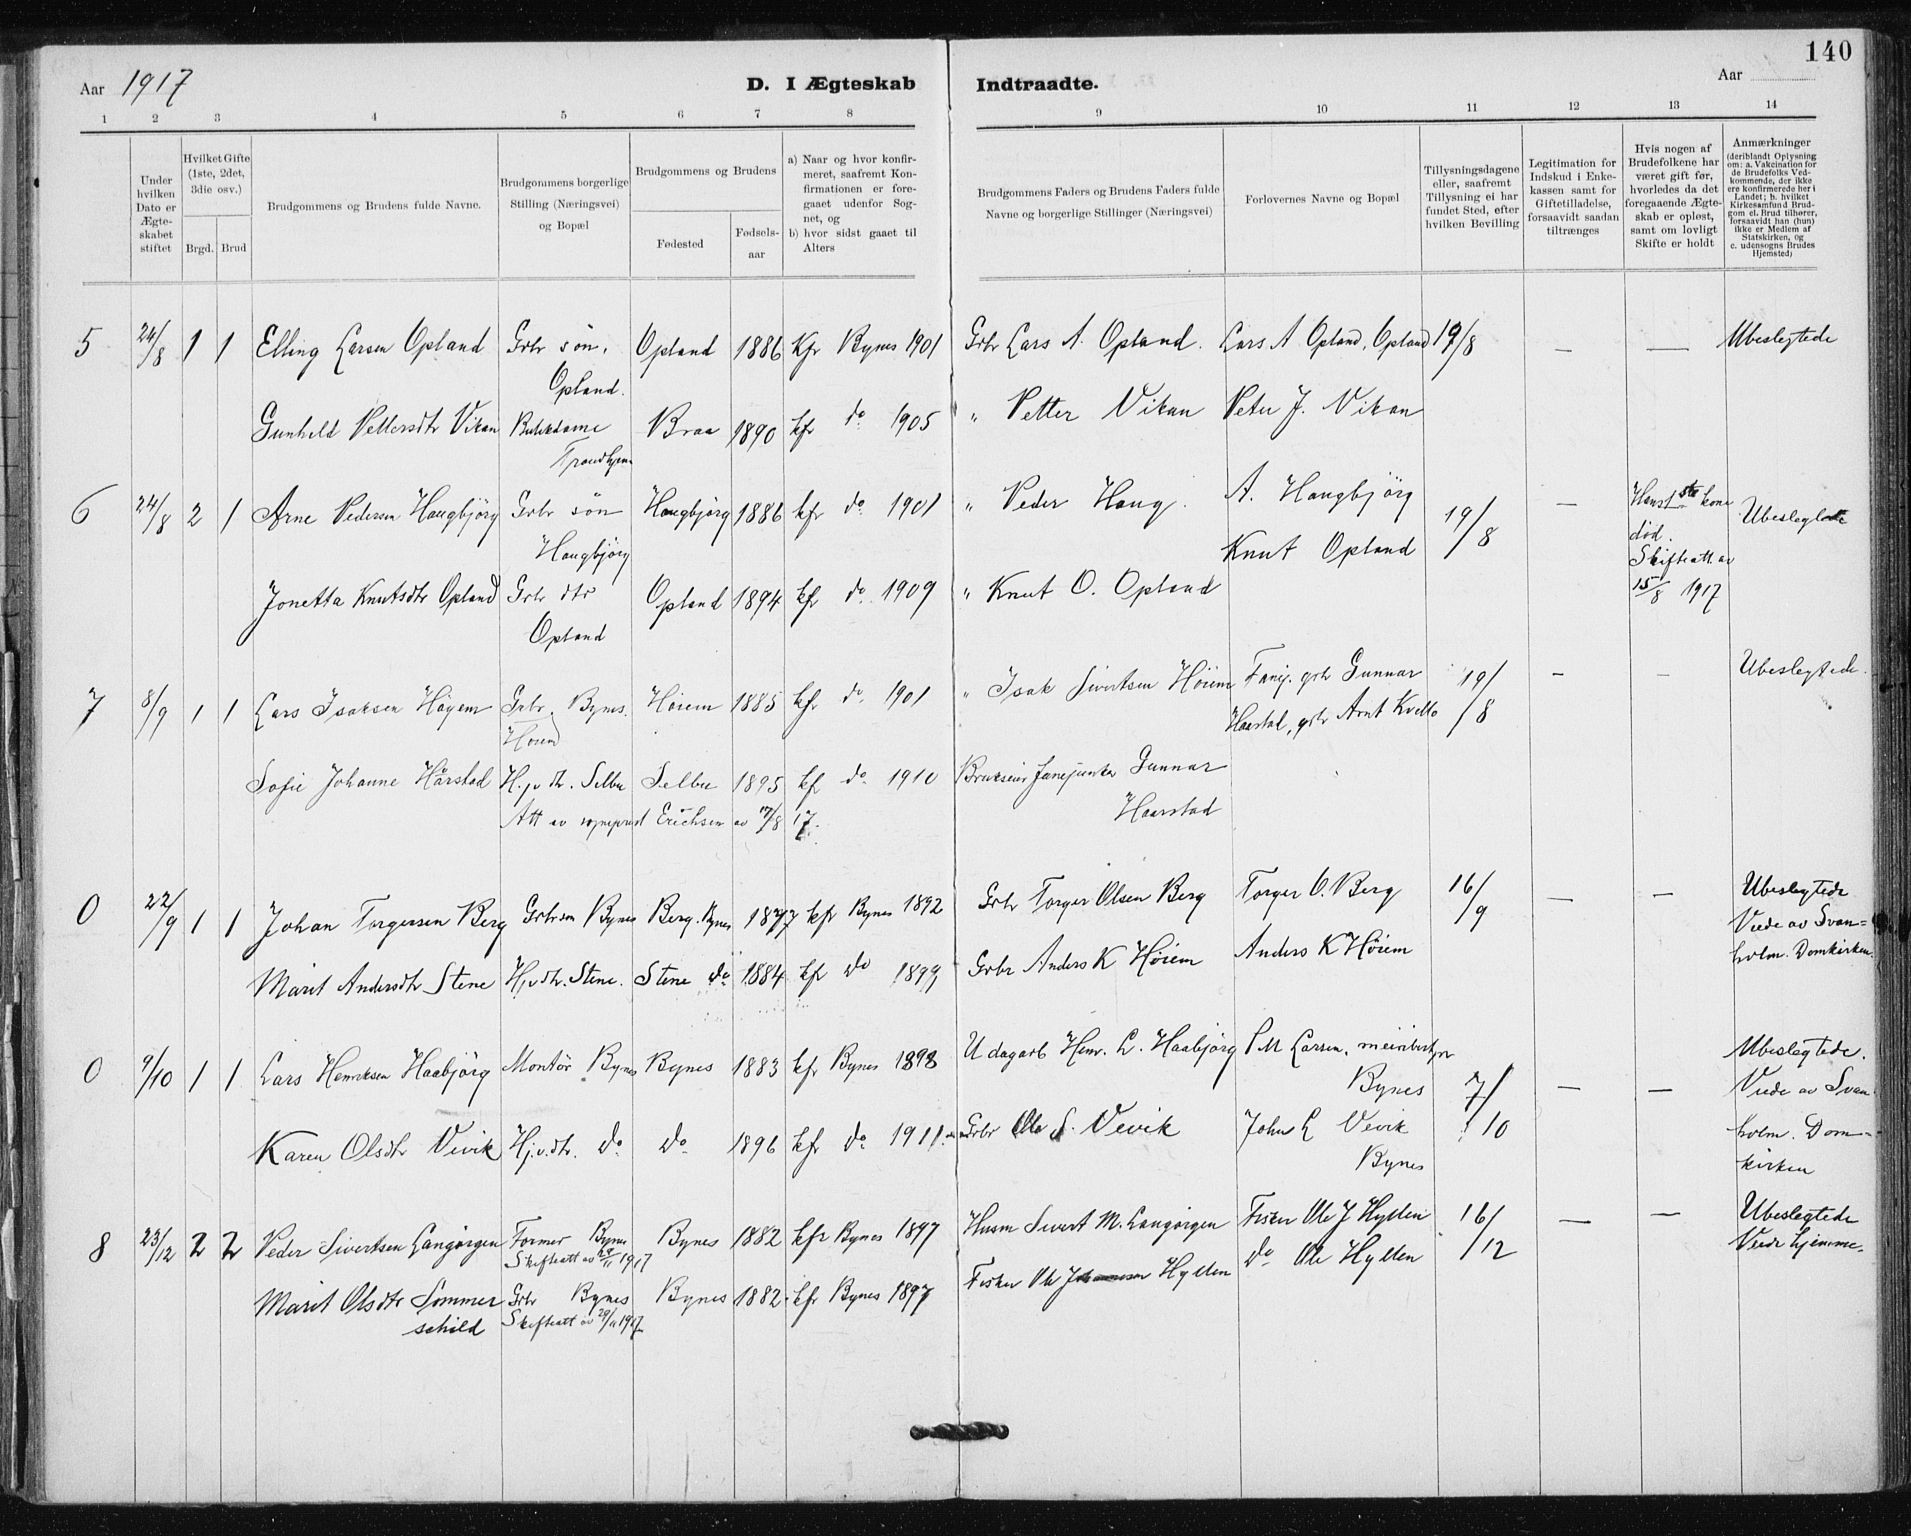 140
Aar 1917
D. I Ægteskab
Indtraadte.
Aar
1 2 3 4 5 6 7 8 9 10 11 12 13 14
Under hvilken Dato er Ægteskabet stiftet
Hvilket Gifte (1ste, 2det, 3die osv.)
Brgd. Brud
Brudgommens og Brudens fulde Navne.
Brudgommens borgerlige Stilling (Næringsvei) og Bopæl
Brudgommens og Brudens
Fødested
Fødselsaar
a) Naar og hvor konfirmeret, saafremt Konfirmationen er foregaaet udenfor Sognet, og
b) hvor sidst gaaet til Alters
Brudgommens Faders og Brudens Faders fulde Navne og borgerlige Stillinger (Næringsvei)
Forlovernes Navne og Bopæl
Tillysningsdagene eller, saafremt Tillysning ei har fundet Sted, efter hvilken Bevilling
Legitimation for Indskud i Enkekassen samt for Giftetilladelse, forsaavidt saadan tiltrænges
Hvis nogen af Brudefolkene har været gift før, hvorledes da det foregaaende Ægteskab er opløst, samt om lovligt Skifte er holdt
Anmærkninger
(deriblandt Oplysning om: a. Vakcination for de Brudefolks Vedkommende, der ikke ere konfirmerede her i Landet; b. hvilket Kirkesamfund Brudgom el. Brud tilhører, forsaavidt han (hun) ikke er Medlem af Statskirken, og c. udensogns Brudes Hjemsted)
5 24/8 1 1 Elling Larsen Opland Grbr søn, Opland 1886 Kfr Bynes 1901 Grbr Lars A. Opland. Lars A Opland, Opland 19/8 — — Ubeslegtede
Opland.
Gunhild Pettersdtr Vikan Butikdame Braa 1890 kfr do 1905 " Petter Vikan Peter J. Vikan
Trondhjem
6 24/8 2 1 Arne Pedersen Haugbjörg Grbr søn Haugbjörg 1886 kfr do 1901 " Peder Haug. A. Haugbjörg 19/8 — Hans 1ste kone Ubeslegtede
Haugbjörg Knut Opland død.
Skifteatt. av
Jonetta Knutsdtr Opland Grbr dtr Opland 1894 kfr do 1909 " Knut O. Opland 15/8 1917
Opland
7 8/9 1 1 Lars Isaksen Höyem Grbr. Bynes. Höiem 1885 kfr do 1901 " Isak Sivertsen Höiem Fanj. grbr Gunnar 19/8 — — Ubeslegtede.
Höiem Haarstad, grbr Arnt Kvello
Sofie Johanne Hårstad H.j.v dtr. Selbu Selbu 1895 kfr do 1910 Brukseier fanejunker Gunnar
Att av sogneprest Erichsen av 17/8 17. Haarstad
0 22/9 1 1 Johan Torgersen Berg Grbr søn Bynes Berg. Bynes 1877 kfr Bynes 1892 Grbr Torger Olsen Berg Torger O. Berg 16/9 — — Ubeslegtede
Viede av Svan=
Marit Andersdtr Stene Hj.v dtr. Stene. Stene do 1884 kfr do 1899 Grbr Anders K Höiem Anders K Höiem holm. Domkirken.
0 9/10 1 1 Lars Henriksen Haabjörg Montör Bynes Bynes 1883 kfr Bynes 1898 U dagarb Henr. L. Haabjörg P M Larsen, meieribestyrer 7/10 — — Ubeslegtede.
Bynes Viede av Svan
Karen Olsdtr Vevik Hj.v.dtr. do do 1896 kfr do 1911. Grbr Ole S. Vevik John L Vevik holm. Dom-
Bynes kirken
8 23/12 2 2 Peder Sivertsen Langörgen Former Bynes Bynes 1882 kfr Bynes 1897 Husm Sivert M. Langörgen Fisker Ole J Hylten 16/12 — — Ubeslegtede
Skifteatt av 29/11 1917 do Ole Hylten Viede hjemme.
Marit Olsdtr Sommerschild Grbr Bynes Bynes 1882. kfr Bynes 1897 Fisker Ole Johannesen Hylten
Skifteatt av 29/11 1917